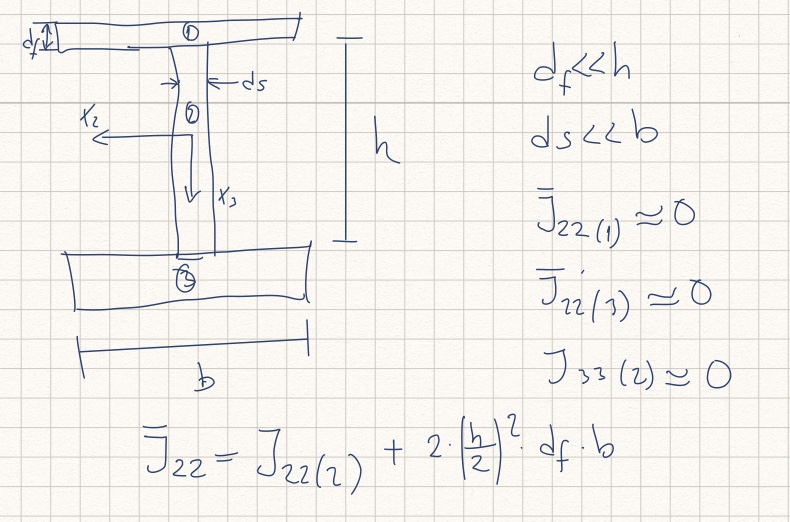 df
①
ds
②
X₂
X₃
③
h
b
df << h
ds << b
J̅₂₂₍₁₎ ≈ 0
J̅₂₂₍₃₎ ≈ 0
J₃₃₍₂₎ ≈ 0
J̅₂₂ = J₂₂₍₂₎ + 2·(h/2)²· df · b